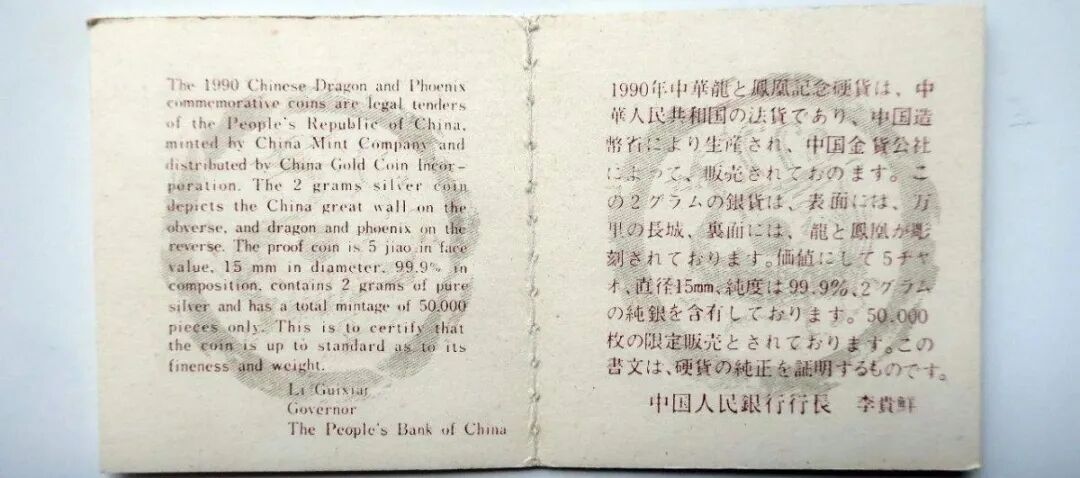 The 1990 Chinese Dragon and Phoenix
commemorative coins are legal tenders
of the People's Republic of China,
minted by China Mint Company and
distributed by China Gold Coin Incor-
poration. The 2 grams silver coin
depicts the China great wall on the
obverse, and dragon and phoenix on the
reverse. The proof coin is 5 jiao in face
value, 15 mm in diameter, 99.9% in
composition, contains 2 grams of pure
silver and has a total mintage of 50,000
pieces only. This is to certify that
the coin is up to standard as to its
fineness and weight.
Li Guixian
Governor
The People's Bank of China
1990年中華龍と鳳凰記念硬貨は、中
華人民共和国の法貨であり、中国造
幣省により生産され、中国金貨公社
によって、販売されておのます。こ
の2グラムの銀貨は、表面には、万
里の長城、裏面には、龍と鳳凰が彫
刻されております。価値にして5チャ
オ、直径15mm、純度は99.9%、2グラム
の純銀を含有しております。50.000
枚の限定販売とされております。この
書文は、硬貨の純正を証明するものです。
中国人民銀行行長 李貴鮮